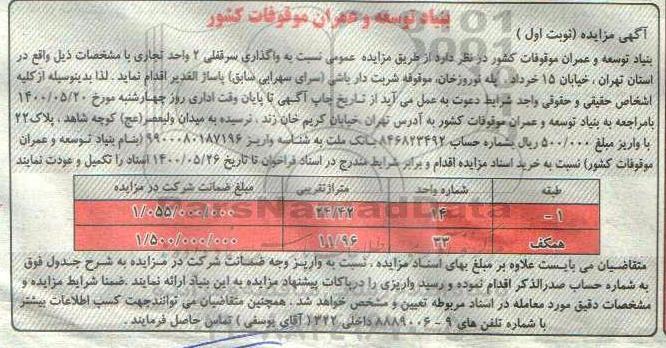 بنیاد توسعه و عمران موقوفات کشور
آگهی مزایده (نوبت اول)
بنیاد توسعه و عمران موقوفات کشور در نظر دارد از طریق مزایده عمومی نسبت به واگذاری سرقفلی ۲ واحد تجاری با مشخصات ذیل واقع در
استان تهران ، خیابان ۱۵ خرداد ، پله نوروزخان، موقوفه شربت دار باشی (سرای سهرابی سابق) پاساژ الغدیر اقدام نماید . لذا بدینوسیله از کلیه
اشخاص حقیقی و حقوقی واجد شرایط دعوت به عمل می آید از تاریخ چاپ آگهی تا پایان وقت اداری روز چهارشنبه مورخ ۱۴۰۰/۰۵/۲۰
بامراجعه به بنیاد توسعه و عمران موقوفات کشور به آدرس تهران ،خیابان کریم خان زند ، نرسیده به میدان ولیعصر(عج) کوچه شاهد ، پلاک۲۲
با واریز مبلغ ۵۰۰/۰۰۰ ریال بشماره حساب ۸۴۶۸۲۳۴۹۲ بانک ملت به شناسه واریز ۹۹۰۰۰۸۰۱۸۷۱۹۶ (بنام بنیاد توسعه و عمران
موقوفات کشور) نسبت به خرید اسناد مزایده اقدام و برابر شرایط مندرج در اسناد فراخوان تا تاریخ ۱۴۰۰/۰۵/۲۶ اسناد را تکمیل و عودت نمایند
طبقه شماره واحد متراژ تقریبی مبلغ ضمانت شرکت در مزایده
۱- ۱۴ ۲۴/۴۲ ۱/۰۵۵/۰۰۰/۰۰۰
همکف ۳۳ ۱۱/۹۶ ۱/۵۰۰/۰۰۰/۰۰۰
ParsNamadData
متقاضیان می بایست علاوه بر مبلغ بهای اسناد مزایده ، نسبت به واریز وجه ضمانت شرکت در مزایده به شرح جدول فوق
به شماره حساب صدرالذکر اقدام نموده و رسید واریزی را درپاکات پیشنهاد مزایده به این بنیاد ارائه نمایند .ضمنا شرایط مزایده و
مشخصات دقیق مورد معامله در اسناد مربوطه تعیین و مشخص خواهد شد . همچنین متقاضیان می توانندجهت کسب اطلاعات بیشتر
با شماره تلفن های ۹ - ۸۸۸۹۰۰۶ داخلی ۳۲۲ ( آقای یوسفی ) تماس حاصل فرمایند .